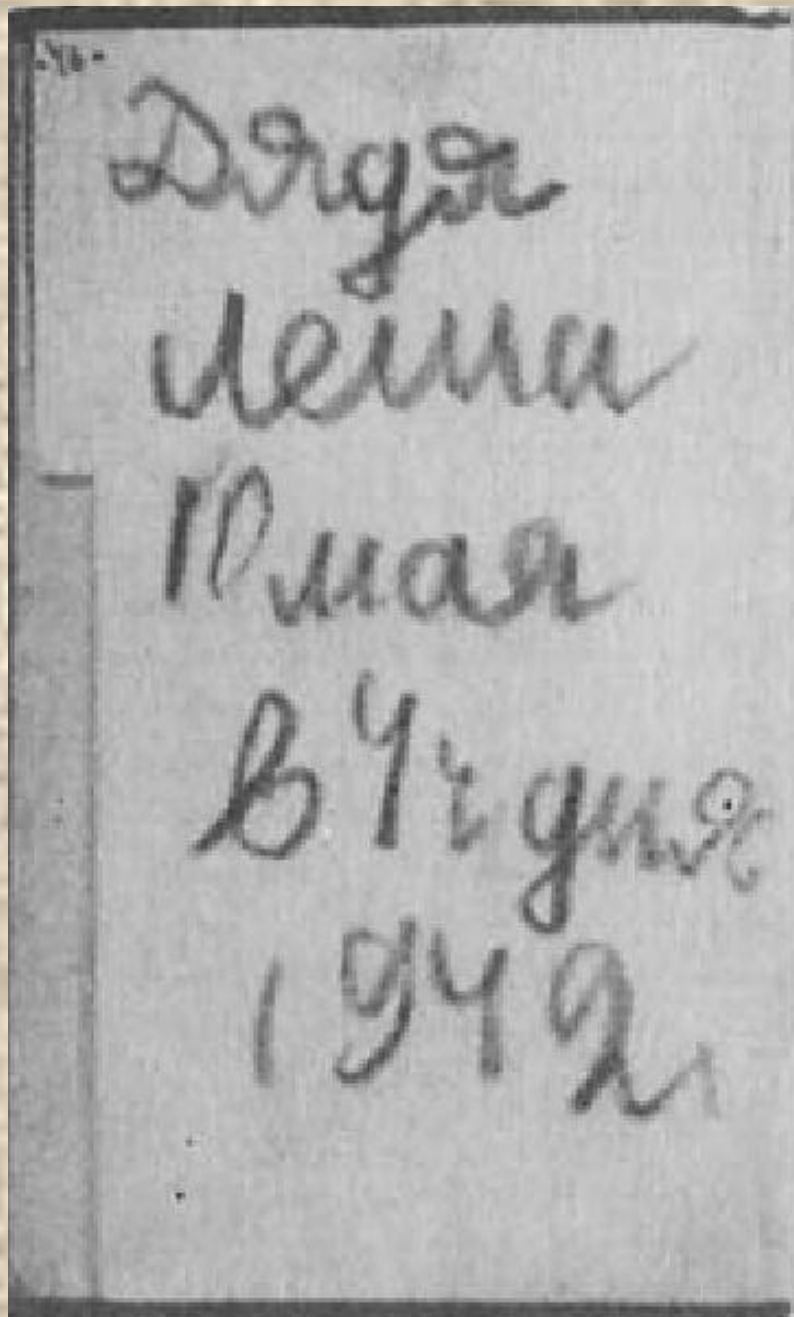 Дядя
Леша
10 мая
в 4 ч дня
1942 г